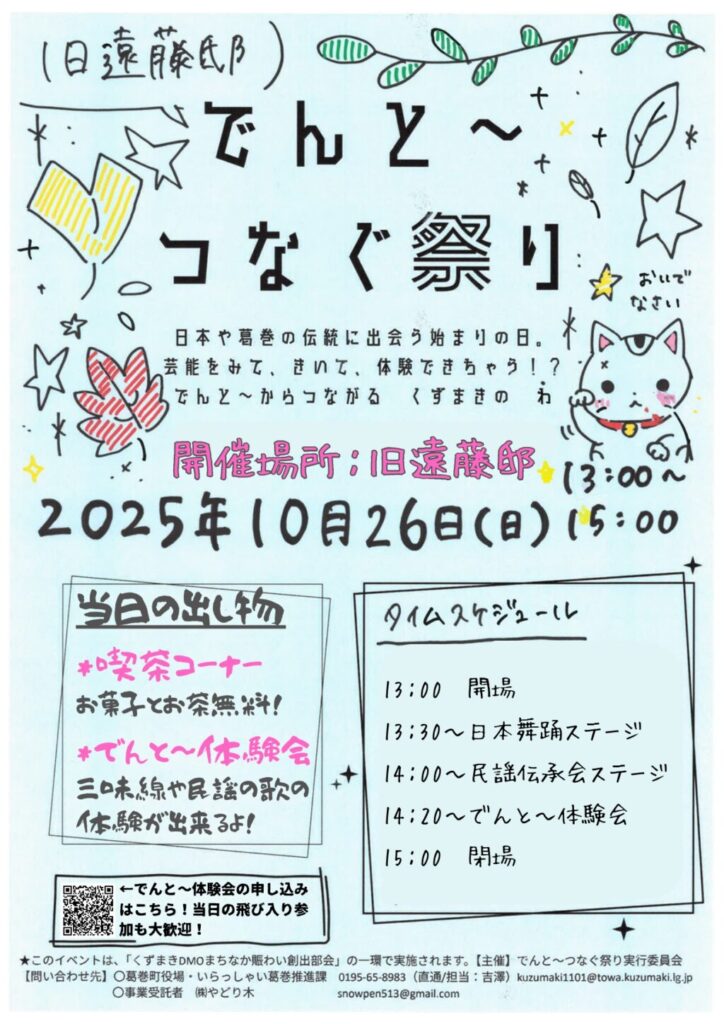 (旧遠藤邸)
でんと～
つなぐ祭り
おいで
なさい
日本や葛巻の伝統に出会う始まりの日。
芸能をみて、きいて、体験できちゃう！？
でんと～からつながる　くずまきの　わ
開催場所；旧遠藤邸
13:00～
2025年10月26日(日) 15:00
当日の出し物
*喫茶コーナー
お菓子とお茶無料！
*でんと～体験会
三味線や民謡の歌の
体験が出来るよ！
タイムスケジュール
13:00　開場
13:30～日本舞踊ステージ
14:00～民謡伝承会ステージ
14:20～でんと～体験会
15:00　閉場
←でんと～体験会の申し込み
はこちら！当日の飛び入り参
加も大歓迎！
★このイベントは、「くずまきDMOまちなか賑わい創出部会」の一環で実施されます。【主催】でんと～つなぐ祭り実行委員会
【問い合わせ先】〇葛巻町役場・いらっしゃい葛巻推進課　0195-65-8983（直通/担当：吉澤）kuzumaki1101@towa.kuzumaki.lg.jp
〇事業受託者　㈱やどり木　snowpen513@gmail.com